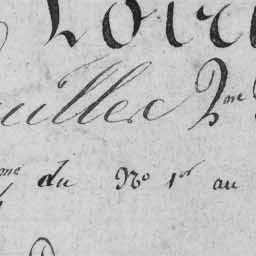 Loire
uillex 2me
me du No 1er au